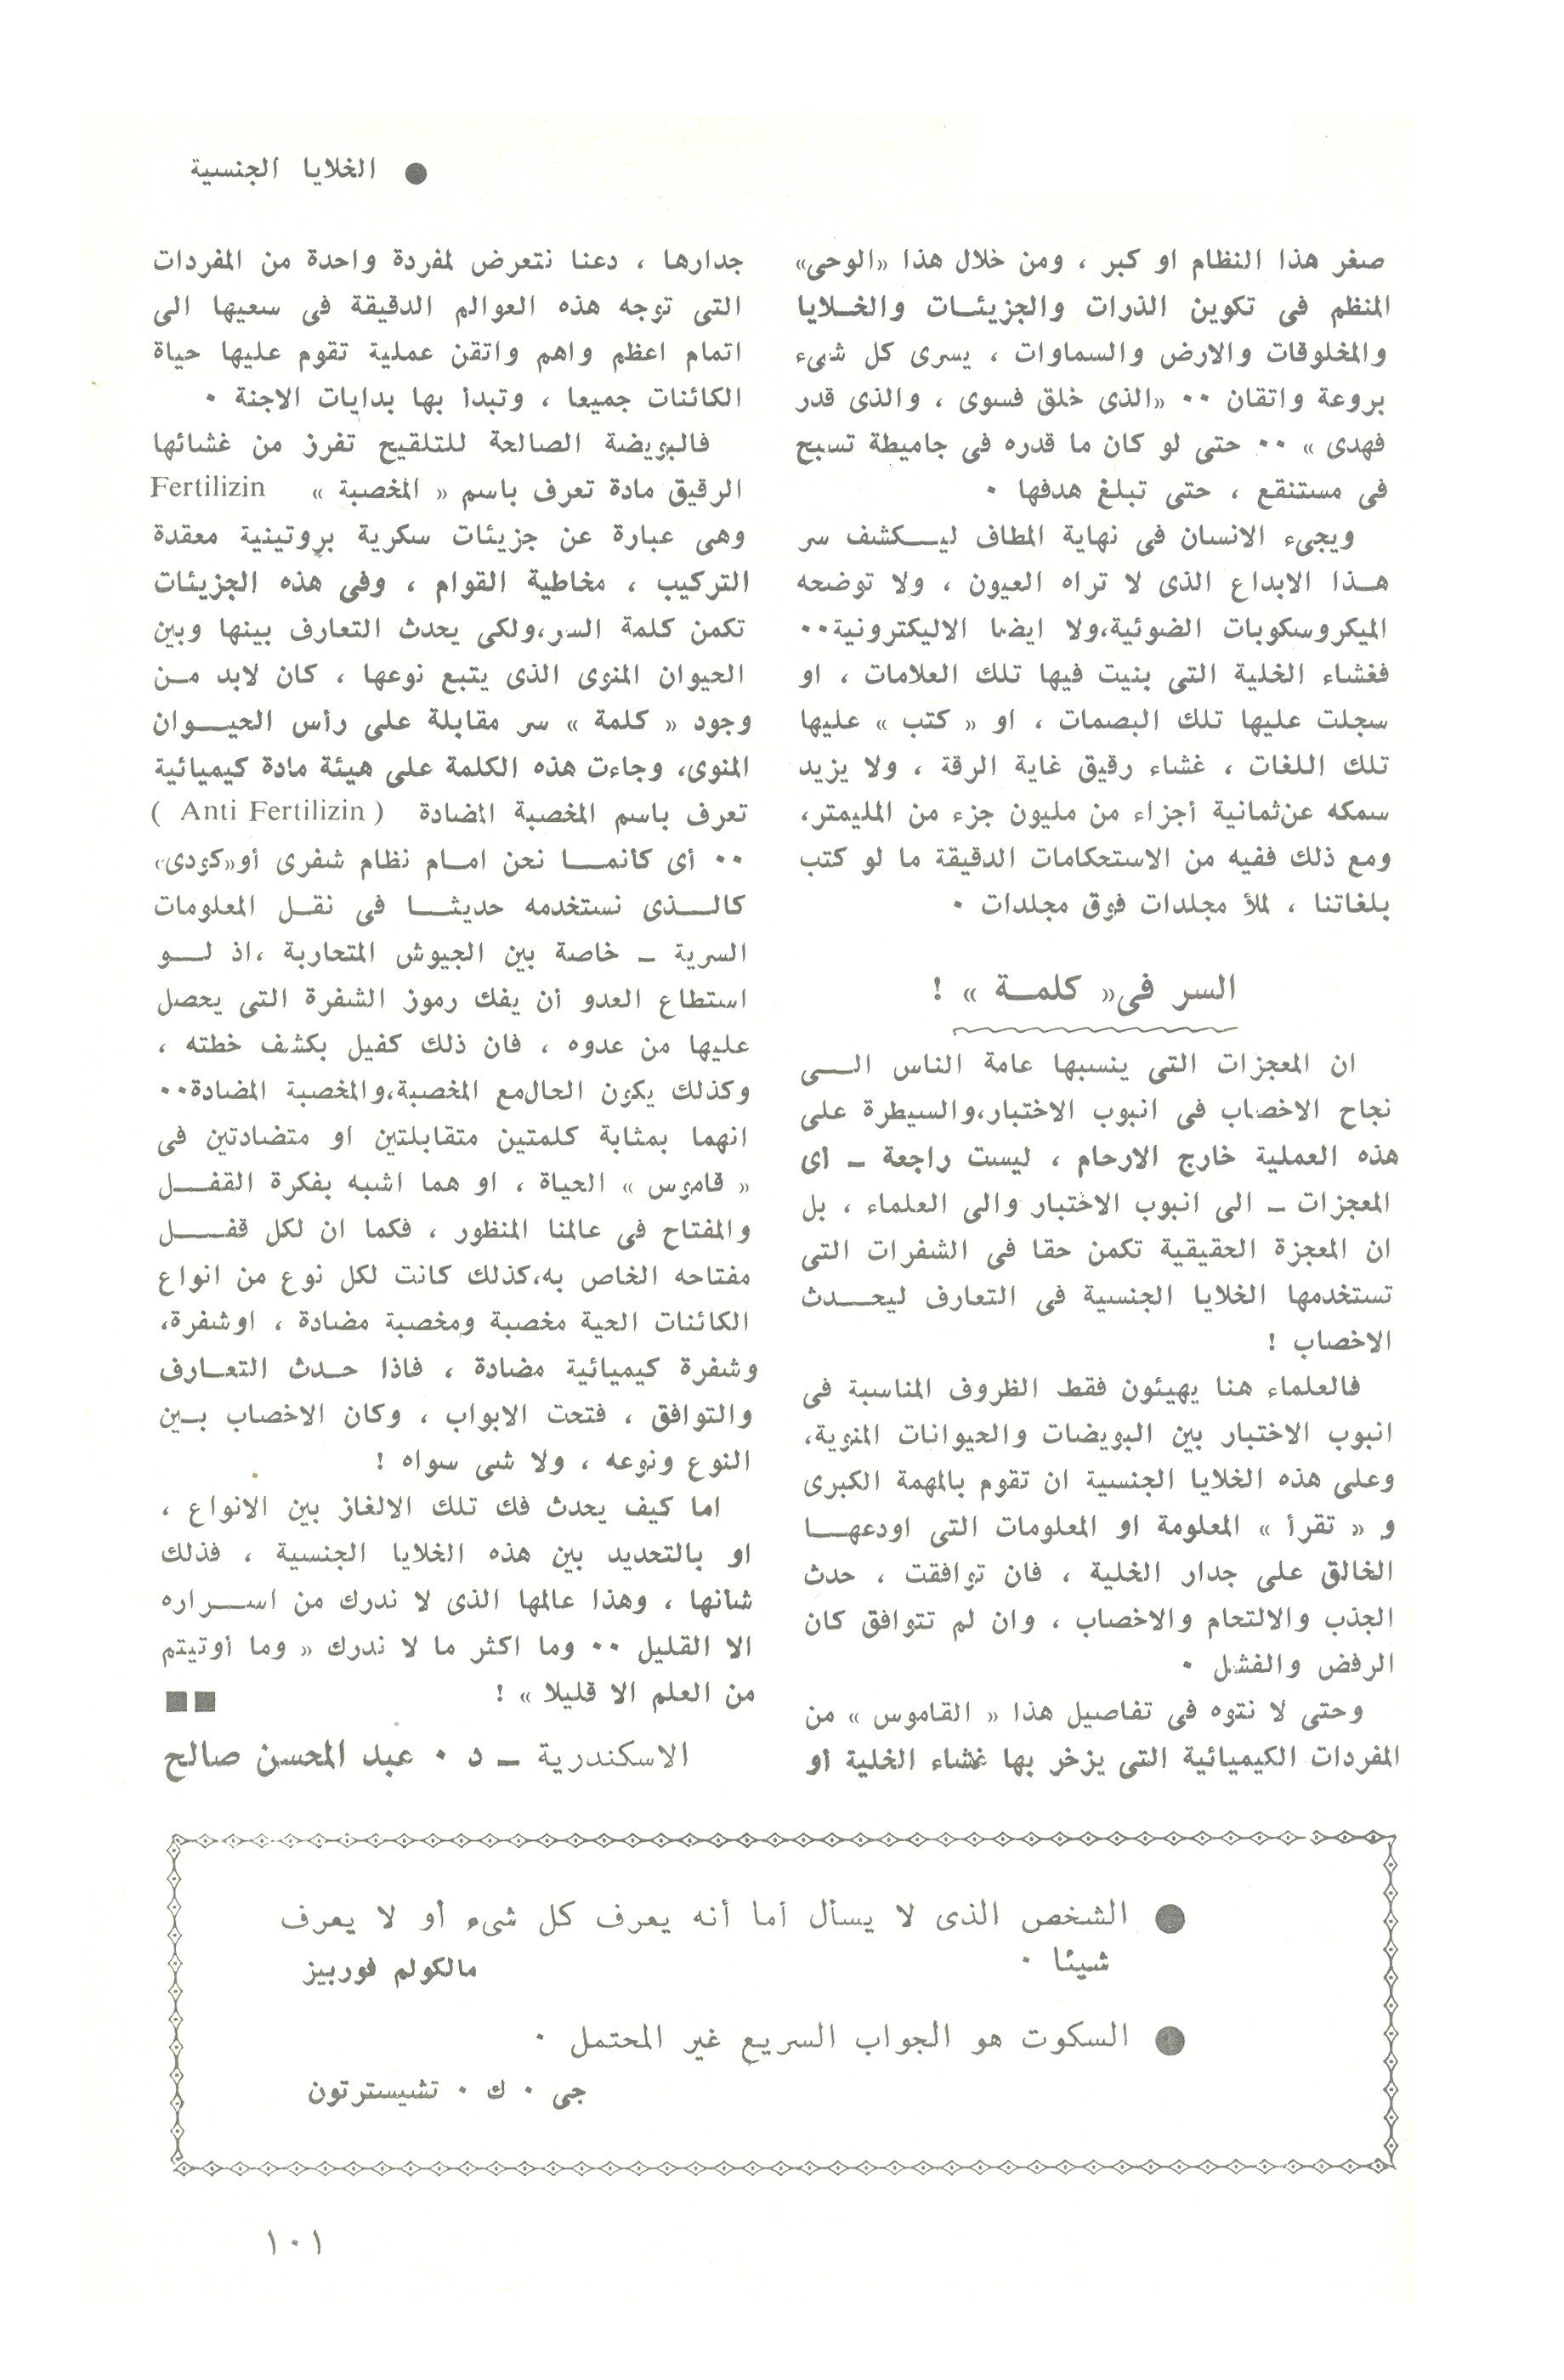 ● الخلايا الجنسية
صغر هذا النظام او كبر ، ومن خلال هذا «الوحى»
المنظم فى تكوين الذرات والجزيئات والخلايا
والمخلوقات والارض والسماوات ، يسرى كل شىء
بروعة واتقان ٠٠ «الذى خلق فسوى ، والذى قدر
فهدى » ٠٠ حتى لو كان ما قدره فى جاميطة تسبح
فى مستنقع ، حتى تبلغ هدفها ٠
ويجىء الانسان فى نهاية المطاف ليكشف سر
هذا الابداع الذى لا تراه العيون ، ولا توضحه
الميكروسكوبات الضوئية،ولا ايضا الاليكترونية٠٠
فغشاء الخلية التى بنيت فيها تلك العلامات ، او
سجلت عليها تلك البصمات ، او « كتب » عليها
تلك اللغات ، غشاء رقيق غاية الرقة ، ولا يزيد
سمكه عن ثمانية أجزاء من مليون جزء من المليمتر،
ومع ذلك ففيه من الاستحكامات الدقيقة ما لو كتب
بلغاتنا ، لملأ مجلدات فوق مجلدات ٠
السر فى« كلمة » !
ان المعجزات التى ينسبها عامة الناس الى
نجاح الاخصاب فى انبوب الاختبار،والسيطرة على
هذه العملية خارج الارحام ، ليست راجعة ـ أى
المعجزات ـ الى انبوب الاختبار والى العلماء ، بل
ان المعجزة الحقيقية تكمن حقا فى الشفرات التى
تستخدمها الخلايا الجنسية فى التعارف ليحدث
الاخصاب !
فالعلماء هنا يهيئون فقط الظروف المناسبة فى
انبوب الاختبار بين البويضات والحيوانات المنوية،
وعلى هذه الخلايا الجنسية ان تقوم بالمهمة الكبرى
و « تقرأ » المعلومة او المعلومات التى اودعها
الخالق على جدار الخلية ، فان توافقت ، حدث
الجذب والالتحام والاخصاب ، وان لم تتوافق كان
الرفض والفشل ٠
وحتى لا نتوه فى تفاصيل هذا « القاموس » من
المفردات الكيميائية التى يزخر بها غشاء الخلية أو
جدارها ، دعنا نتعرض لمفردة واحدة من المفردات
التى توجه هذه العوالم الدقيقة فى سعيها الى
اتمام اعظم واهم واتقن عملية تقوم عليها حياة
الكائنات جميعا ، وتبدأ بها بدايات الاجنة ٠
فالبويضة الصالحة للتلقيح تفرز من غشائها
الرقيق مادة تعرف باسم « المخصبة » Fertilizin
وهى عبارة عن جزيئات سكرية بروتينية معقدة
التركيب ، مخاطية القوام ، وفى هذه الجزيئات
تكمن كلمة السر،ولكى يحدث التعارف بينها وبين
الحيوان المنوى الذى يتبع نوعها ، كان لابد من
وجود « كلمة » سر مقابلة على رأس الحيوان
المنوى، وجاءت هذه الكلمة على هيئة مادة كيميائية
تعرف باسم المخصبة المضادة ( Anti Fertilizin )
٠٠ أى كأنما نحن امام نظام شفرى أو«كودى»
كالذى نستخدمه حديثا فى نقل المعلومات
السرية ـ خاصة بين الجيوش المتحاربة ،اذ لو
استطاع العدو أن يفك رموز الشفرة التى يحصل
عليها من عدوه ، فان ذلك كفيل بكشف خطته ،
وكذلك يكون الحال مع المخصبة،والمخصبة المضادة٠٠
انهما بمثابة كلمتين متقابلتين او متضادتين فى
« قاموس » الحياة ، او هما اشبه بفكرة القفل
والمفتاح فى عالمنا المنظور ، فكما ان لكل قفل
مفتاحه الخاص به،كذلك كانت لكل نوع من انواع
الكائنات الحية مخصبة ومخصبة مضادة ، اوشفرة،
وشفرة كيميائية مضادة ، فاذا حدث التعارف
والتوافق ، فتحت الابواب ، وكان الاخصاب بين
النوع ونوعه ، ولا شى سواه !
اما كيف يحدث فك تلك الالغاز بين الانواع ،
او بالتحديد بين هذه الخلايا الجنسية ، فذلك
شأنها ، وهذا عالمها الذى لا ندرك من اسراره
الا القليل ٠٠ وما اكثر ما لا ندرك « وما أوتيتم
من العلم الا قليلا » ! ■■
الاسكندرية ـ د ٠ عبد المحسن صالح
● الشخص الذى لا يسأل أما أنه يعرف كل شىء أو لا يعرف
شيئا ٠
مالكولم فوربيز
● السكوت هو الجواب السريع غير المحتمل ٠
جى ٠ ك ٠ تشيسترتون
١٠١